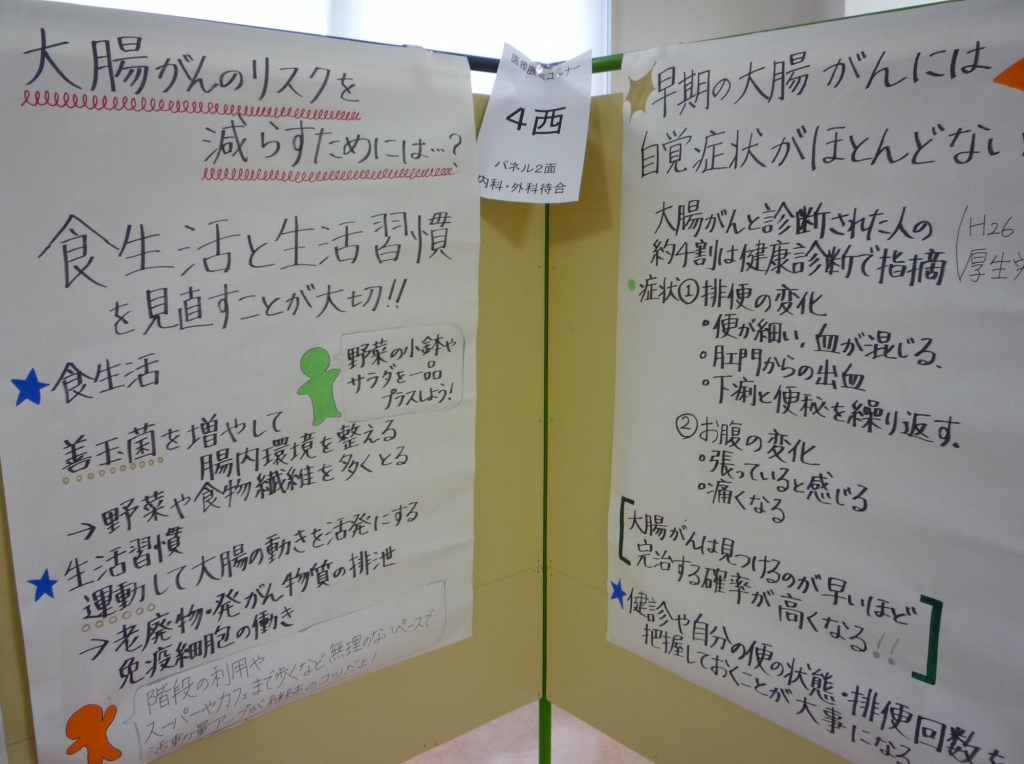 大腸がんのリスクを
減らすためには…?
食生活と生活習慣
を見直すことが大切!!
★食生活
野菜の小鉢や
サラダを一品
プラスしよう!
善玉菌を増やして
腸内環境を整える
→野菜や食物繊維を多くとる
★生活習慣
運動して大腸の動きを活発にする
→老廃物・発がん物質の排泄
免疫細胞の働き
階段の利用や
スーパーやカフェまで歩くなど無理のないペースで
活動量アップが継続のコツだよ!
医療展コーナー
4西
パネル2面
内科・外科待合
早期の大腸がんには
自覚症状がほとんどない!
大腸がんと診断された人の
約4割は健康診断で指摘
(H26
厚生労
症状①排便の変化
・便が細い、血が混じる.
・肛門からの出血
・下痢と便秘を繰り返す.
②お腹の変化
・張っていると感じる
・痛くなる
大腸がんは見つけるのが早いほど
完治する確率が高くなる!!
★健診や自分の便の状態・排便回数も
把握しておくことが大事になる